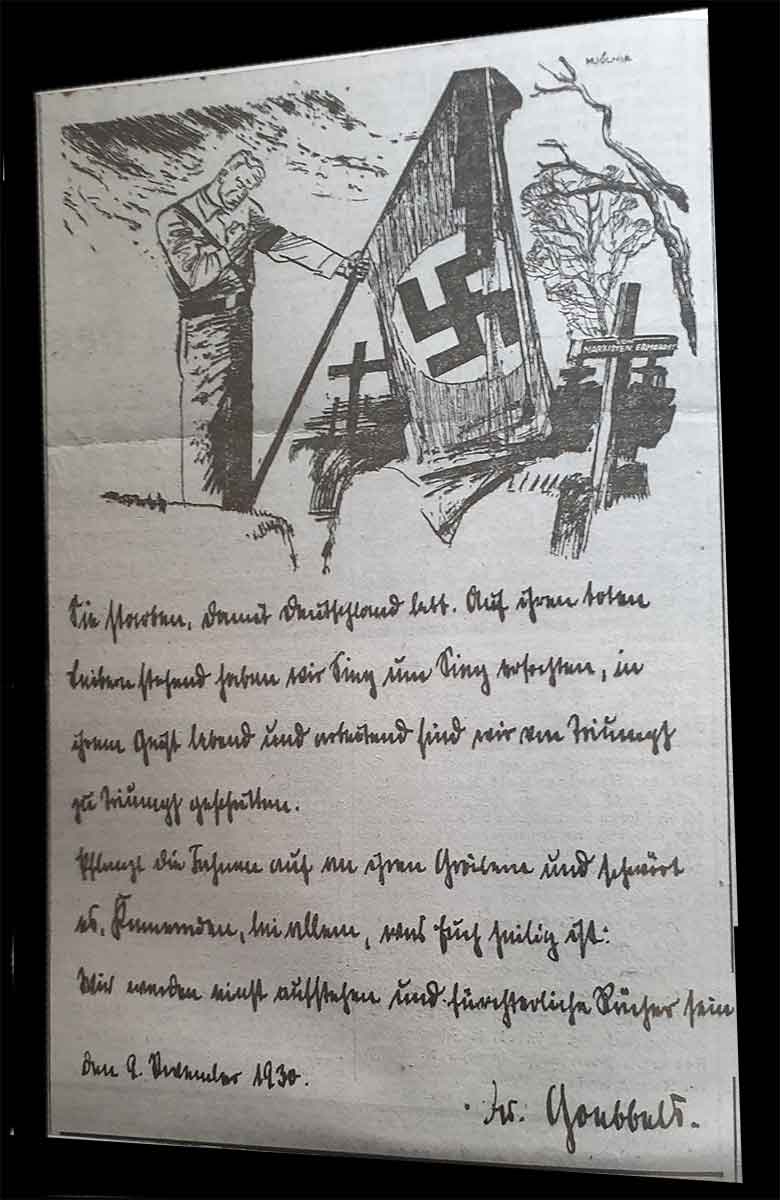 MJÖLNIR
VON
MARXISTEN ERMORDET
Sie starben, damit Deutschland lebt. Auf ihren toten
Leibern stehend haben wir Sieg um Sieg erfochten, in
ihrem Geist lebend und arbeitend sind wir von Triumph
zu Triumph geschritten.
Pflanzt die Fahnen auf an ihren Gräbern und schwört
es, Kameraden, bei allem, was Euch heilig ist:
Wir werden einst aufstehen und fürchterliche Rächer sein
Den 9. November 1930.
Dr. Goebbels.